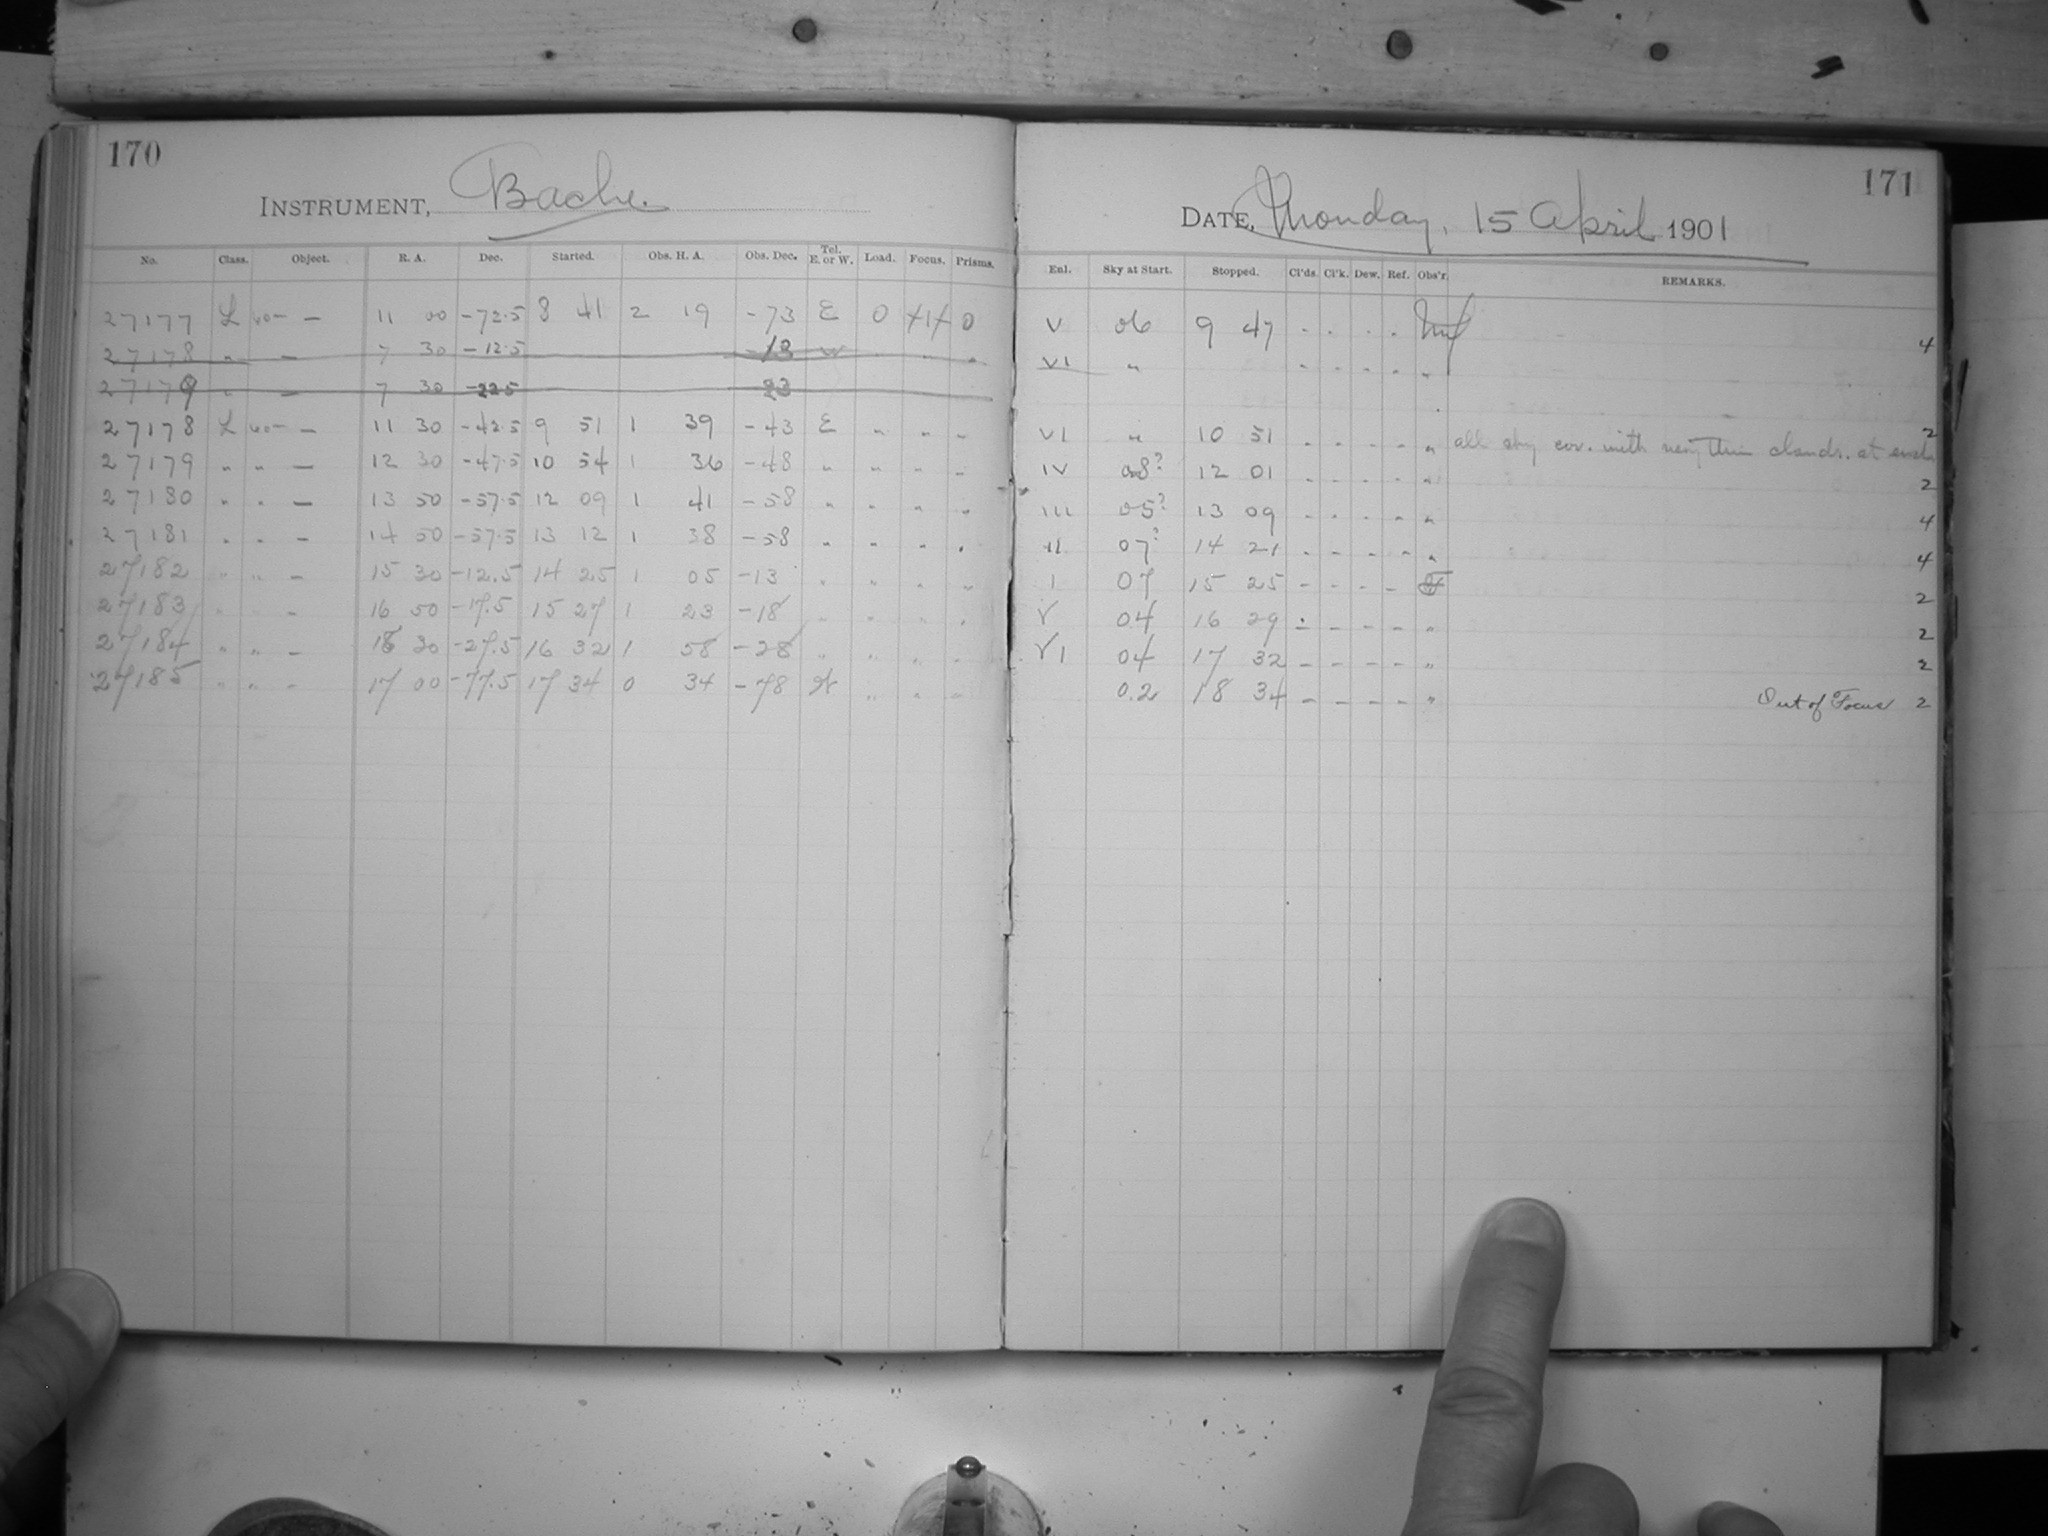 170
INSTRUMENT, Bache.
No. Class. Object. R. A. Dec. Started. Obs. H. A. Obs. Dec. Tel. E. or W. Load. Focus. Prisms.
27177 L 60m — 11 00 -72.5 8 41 2 19 -73 E 0 0
27178 " — 7 30 -12.5 -13 W " "
27179 " — 7 30 -22.5 23
27178 L 60m — 11 30 -42.5 9 51 1 39 -43 E " " "
27179 " " — 12 30 -47.5 10 54 1 36 -48 " " " "
27180 " " — 13 50 -57.5 12 09 1 41 -58 " " " "
27181 " " — 14 50 -57.5 13 12 1 38 -58 " " " "
27182 " " — 15 30 -12.5 14 25 1 05 -13 " " " "
27183 " " — 16 50 -17.5 15 27 1 23 -18 " " " "
27184 " " — 16 30 -27.5 16 32 1 58 -28 " " " "
27185 " " — 17 00 -77.5 17 34 0 34 -78 W " " "
171
DATE, Monday, 15 April 1901
Enl. Sky at Start. Stopped. Cl'ds. Cl'k. Dew. Ref. Obs'r. REMARKS.
V 06 9 47 - - - - 4
VI " - - - - "
VI " 10 51 - - - - " all sky cov. with very thin clouds. at 2
IV 08? 12 01 - - - - " 2
III 05? 13 09 - - - - " 4
II 07? 14 21 - - - - " 4
I 07 15 25 - - - - 2
V 04 16 29 - - - - " 2
VI 04 17 32 - - - - " 2
0.2 18 34 - - - - " Out of Focus 2